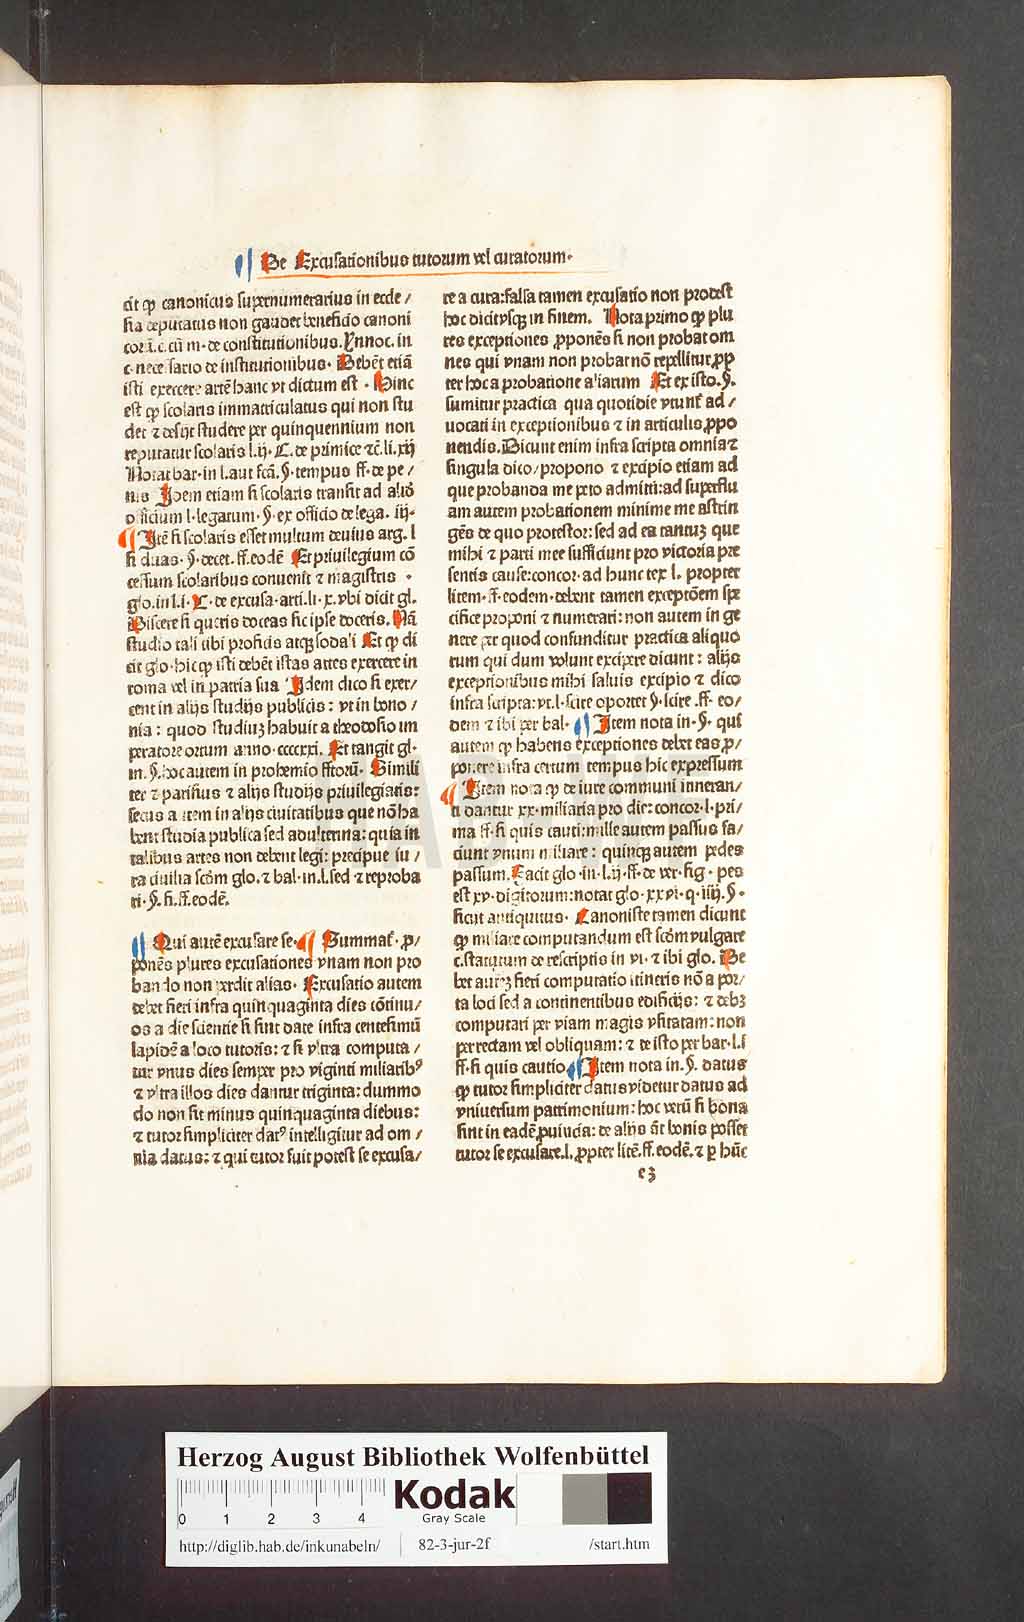 De Excusationibus tutorum vel curatorum.
cit ꝙ canonicus supernumerarius in eccle/
sia deputatus non gaudet beneficio canoni
cor̄. ī. c. cū m. de constitutionibus. Ynnoc. in
c. necessario de institutionibus. Debēt etiā
isti exercere artē hanc vt dictum est. Hinc
est ꝙ scolaris immatriculatus qui non stu
det ⁊ desijt studere per quinquennium non
reputatur scolaris l. ij. C. de primice ⁊c̄. li. xij
Notat bar. in l. aut fcā. §. tempus ff. de pe/
nis Idem etiam si scolaris transit ad aliō
officium l. legatum. §. ex officio de lega. iij.
Itē si scolaris esset multum deuius arg. l
si duas. §. decet. ff. eodē Et priuilegium cō
cessum scolaribus conuenit ⁊ magistris.
glo. in l. i. C. de excusa. arti. li. x. vbi dicit gl.
Discere si queris doceas sic ipse doceris. Nā
studio tali tibi proficis atqꝫ sodali Et ꝙ di
cit glo. hic ꝙ isti debēt istas artes exercere in
roma vel in patria sua Idem dico si exer/
cent in alijs studijs publicis: vt in bono/
nia: quod studiuꝫ habuit a theodosio im
peratore ortum anno. ccccxxi. Et tangit gl.
in. §. hoc autem in prohemio fftorū. Simili
ter ⁊ parisius ⁊ alijs studijs priuilegiatis:
secus autem in alijs ciuitatibus que nō ha
bent studia publica sed adulterina: quia in
talibus artes non debent legi: precipue iu/
ra ciuilia scdm glo. ⁊ bal. in. l. sed ⁊ reproba
ri. §. si. ff. eodē.
Qui autē excusare se. Summat. ꝓ/
ponēs plures excusationes vnam non pro
bando non perdit alias. Excusatio autem
debet fieri infra quinquaginta dies cōtinu/
os a die scientie si sint date infra centesimū
lapidē a loco tutoris: ⁊ si vltra computa/
tur vnus dies semper pro viginti miliaribꝰ
⁊ vltra illos dies dantur triginta: dummo
do non sit minus quinquaginta diebus:
⁊ tutor simpliciter datꝰ intelligitur ad om/
nia datus: ⁊ qui tutor fuit potest se excusa/
re a cura: falsa tamen excusatio non prodest
hoc dicit vsqꝫ in finem. Nota primo ꝙ plu
res exceptiones ꝓponēs si non probat om
nes qui vnam non probat nō repellitur ꝓp
ter hoc a probatione aliarum Et ex isto. §.
sumitur practica qua quotidie vtunt̄ ad/
uocati in exceptionibus ⁊ in articulis ꝓpo
nendis. Dicunt enim infra scripta omnia ⁊
singula dico/ propono ⁊ excipio etiam ad
que probanda me peto admitti: ad superflu
am autem probationem minime me astrin
gēs de quo protestor: sed ad ea tantuꝫ que
mihi ⁊ parti mee sufficiunt pro victoria pre
sentis cause: concor. ad hunc tex l. propter
litem. ff. eodem. debent tamen exceptōem spe
cifice proponi ⁊ numerari: non autem in ge
nere per quod confunditur practica aliquo
rum qui dum volunt excipere dicunt: alijs
exceptionibus mihi saluis excipio ⁊ dico
infra scripta: vt. l. scire oportet §. scire. ff. eo/
dem ⁊ ibi per bal. Item nota in. §. qui
autem ꝙ habens exceptiones debet eas ꝓ/
ponere infra certum tempus hic expressum
Item nota ꝙ de iure communi itineran/
ti dantur xx. miliaria pro die: concor. l. pri/
ma ff. si quis cauti: mille autem passus fa/
ciunt vnum miliare: quinqꝫ autem pedes
passum. Facit glo. in. l. ij. ff. de ver. sig. pes
est xv. digitorum: notat glo. xxvi. q. iiij. §.
sicut antiquitus. Canoniste tamen dicunt
ꝙ miliare computandum est scdm vulgare
c. statutum de rescriptis in vi. ⁊ ibi glo. De
bet auteꝫ fieri computatio itineris nō a por/
ta loci sed a continentibus edificijs: ⁊ debꝫ
computari per viam magis vsitatam: non
per rectam vel obliquam: ⁊ de isto per bar. l. i
ff. si quis cautio Item nota in. §. datus
ꝙ tutor simpliciter datus videtur datus ad
vniuersum patrimonium: hoc verū si bona
sint in eadē ꝓuincia: de alijs āt bonis posset
tutor se excusare. l. ꝓpter litē. ff. eodē. ⁊ ꝑ hūc
e 3
HAB WF
Herzog August Bibliothek Wolfenbüttel
0 1 2 3 4 Kodak
Gray Scale
http://diglib.hab.de/inkunabeln/ 82-3-jur-2f /start.htm